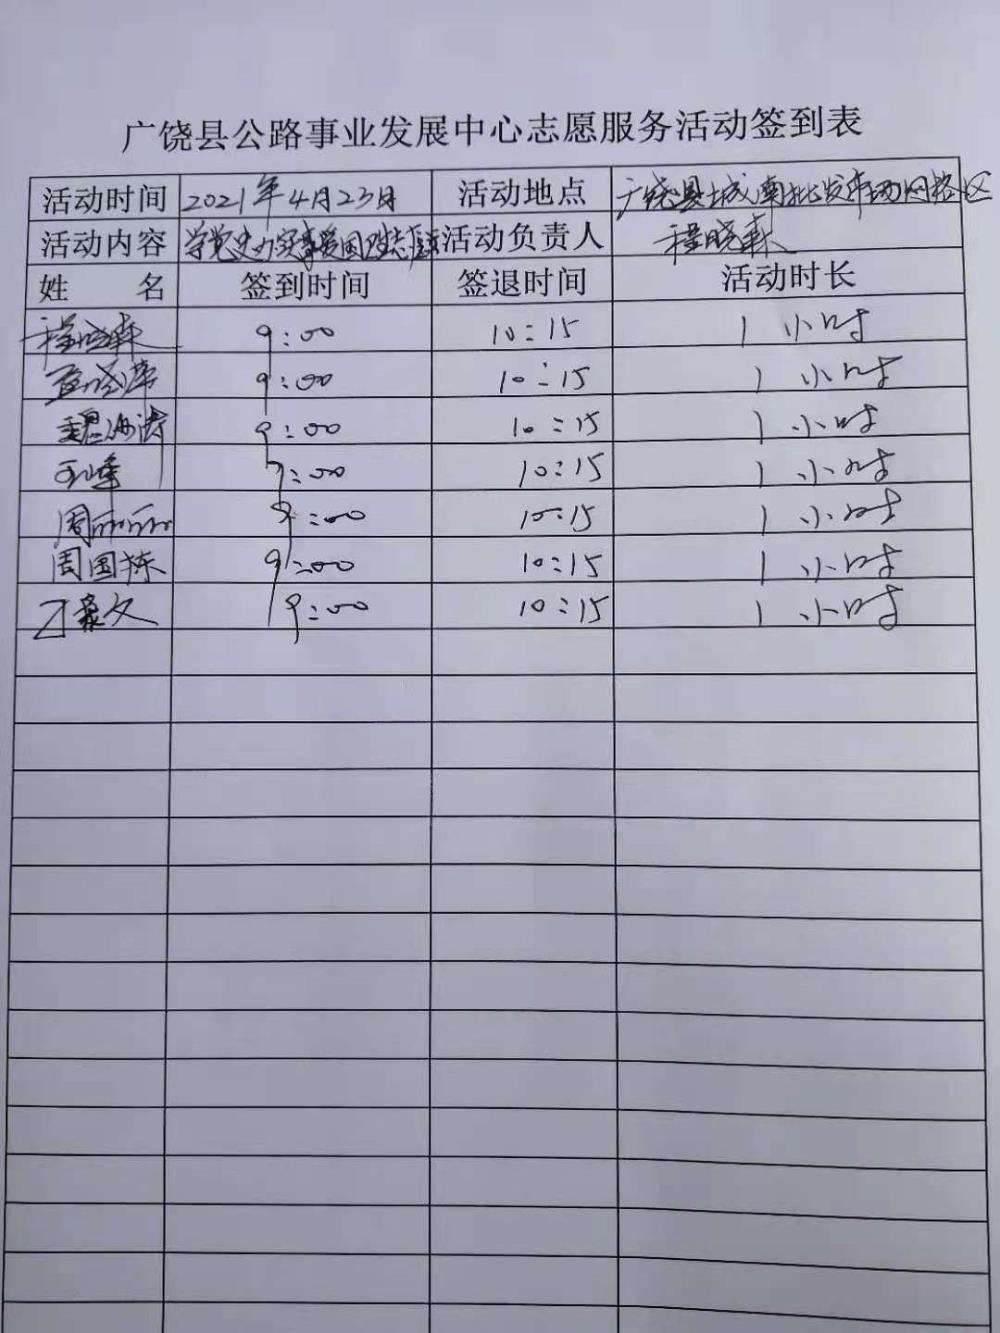 广饶县公路事业发展中心志愿服务活动签到表
活动时间 2021年4月23日 活动地点 广饶县城南批发市场网格区
活动内容 学党史办实事爱国卫生志愿 活动负责人 程晓森
姓 名 签到时间 签退时间 活动时长
程晓森 9:00 10:15 1小时
9:00 10:15 1小时
魏海涛 9:00 10:15 1小时
王峰 9:00 10:15 1小时
周丽丽 9:00 10:15 1小时
周国栋 9:00 10:15 1小时
9:00 10:15 1小时